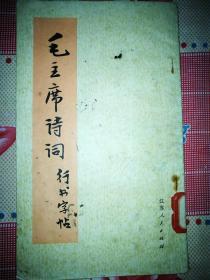 毛主席诗词
行书字帖
江苏人民出版社